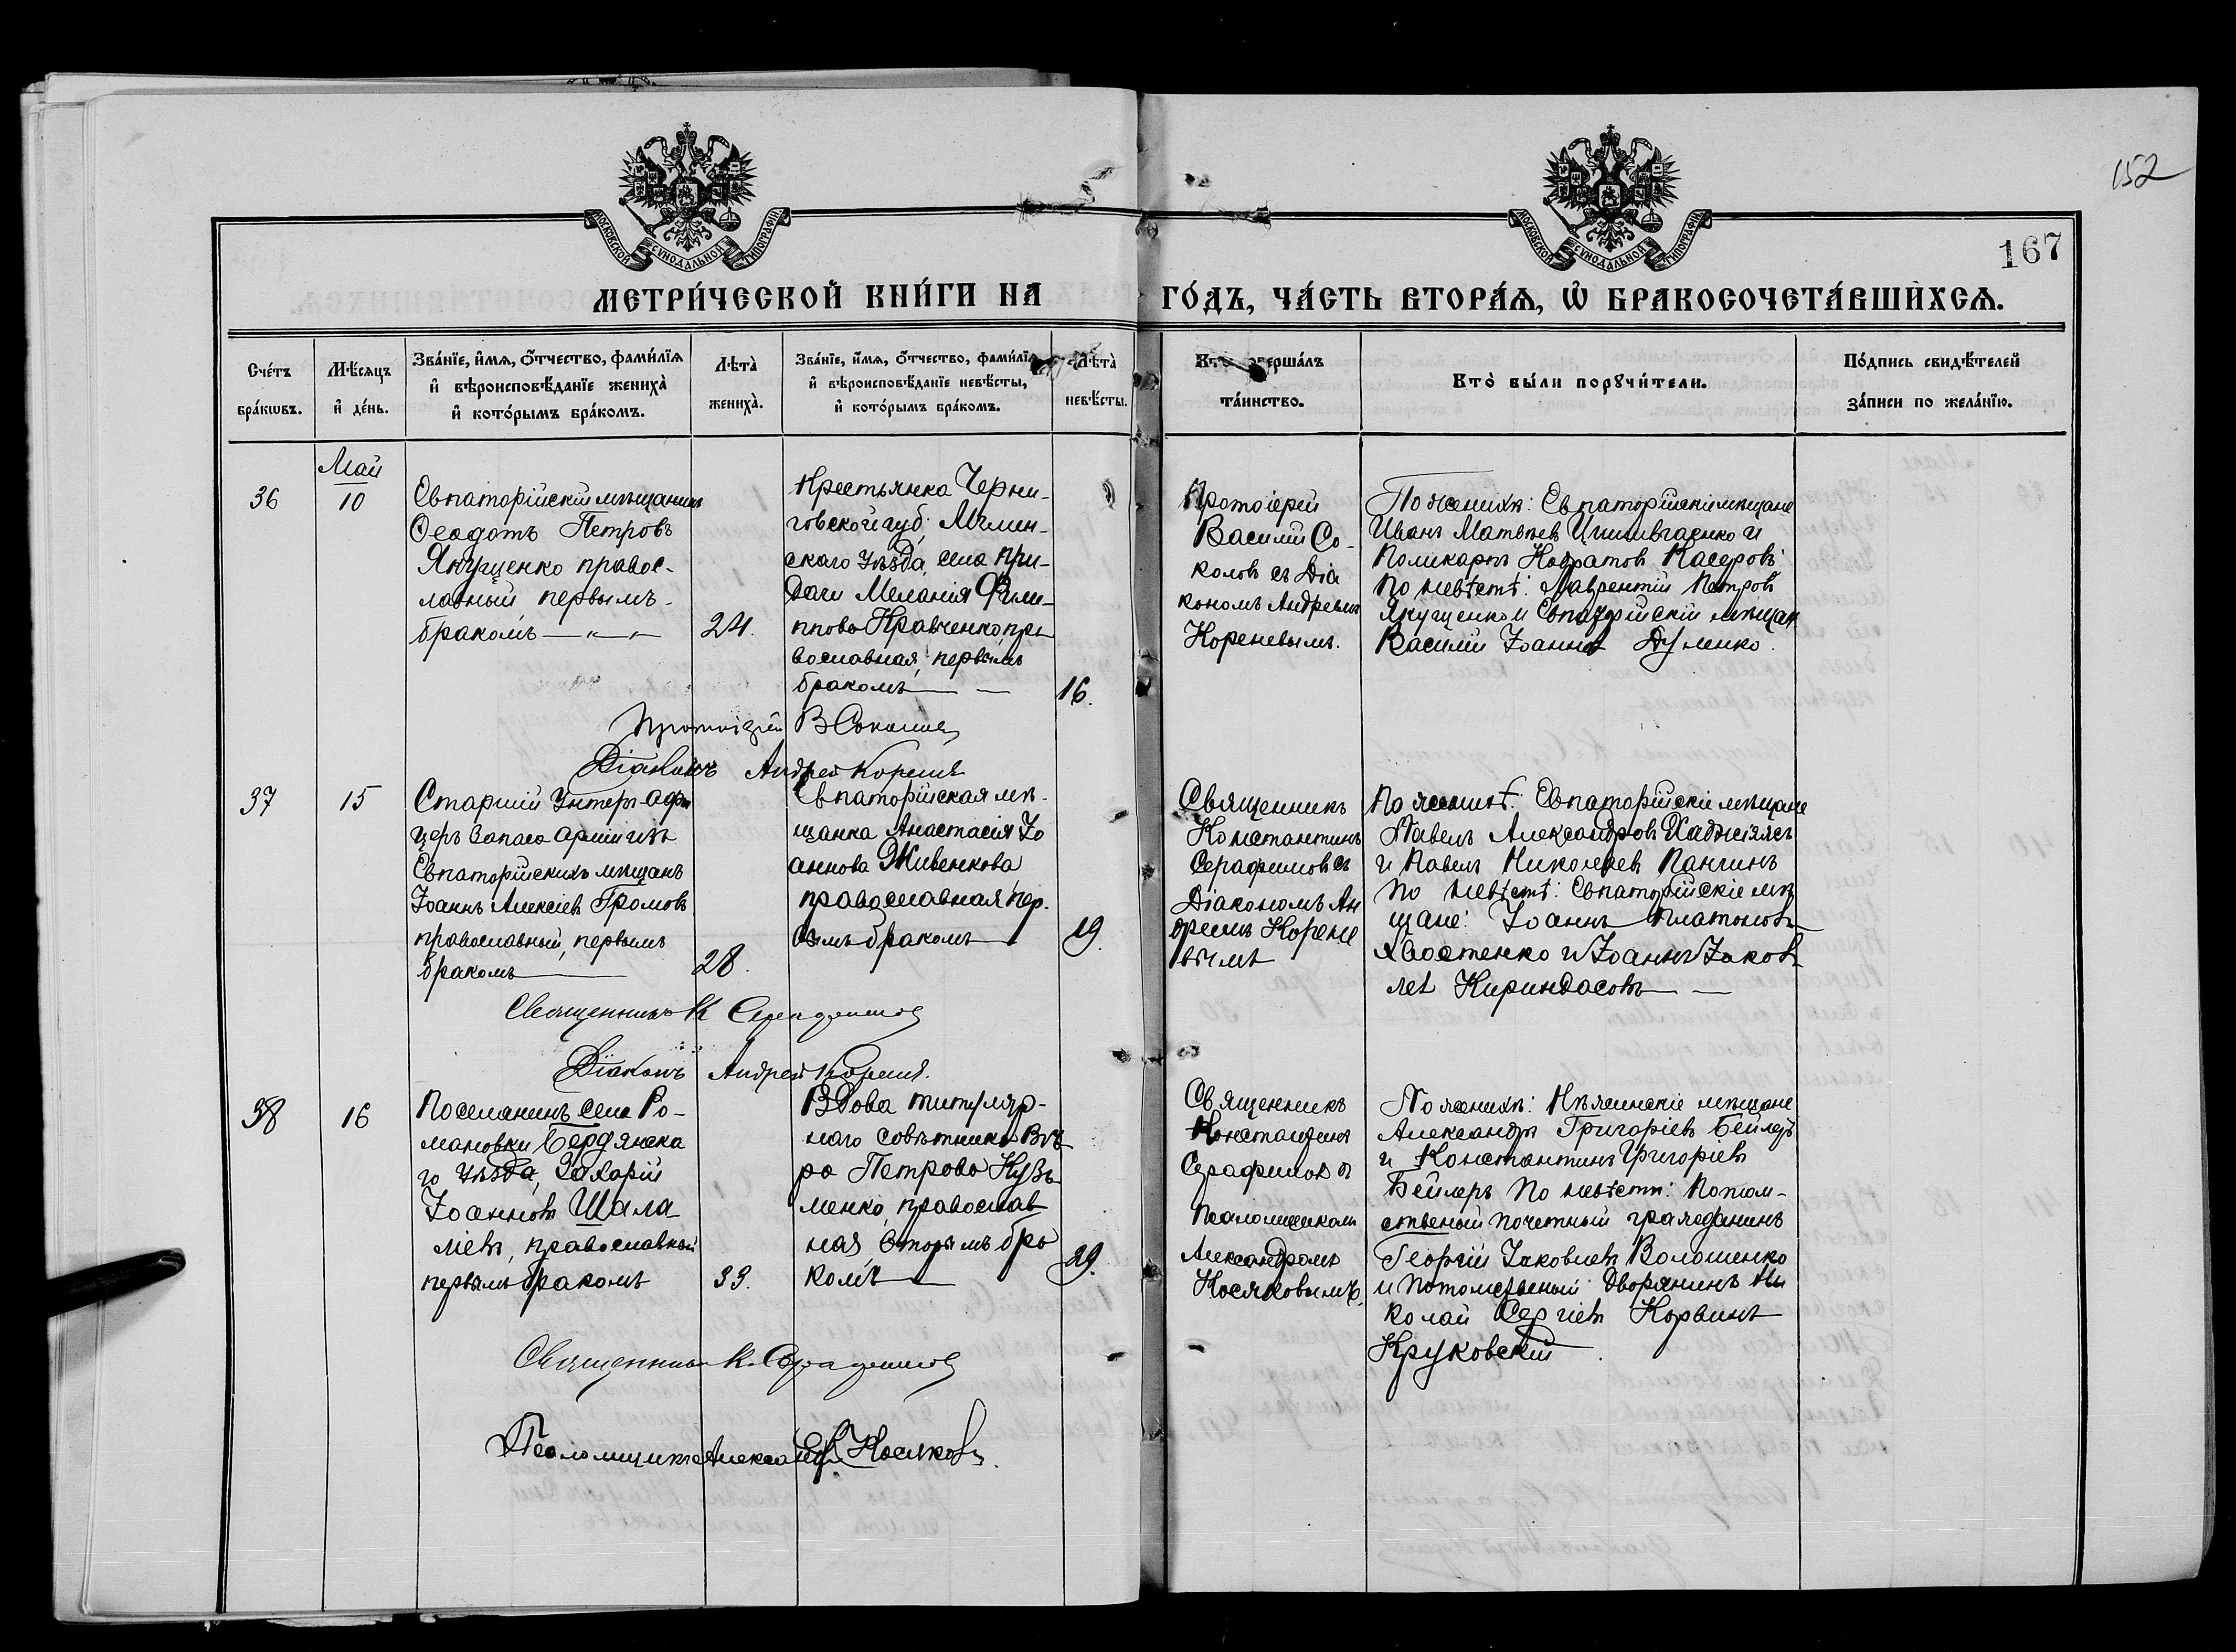 152
167
МОСКОВСКОЙ СѴНОДАЛЬНОЙ ТИПОГРАФІИ
МОСКОВСКОЙ СѴНОДАЛЬНОЙ ТИПОГРАФІИ
МЕТРИ́ЧЕСКОЙ КНИ́ГИ НА ГО́ДЪ, ЧА́СТЬ ВТОРА́Ѧ, Ѡ҆ БРАКОСОЧЕТА́ВШИХСѦ.
Сче́тъ
бра́кѡвъ.
Мѣ́сѧцъ
и҆ де́нь.
Зва́нїе, и҆́мѧ, ѻ҆́тчество, фами́лїѧ
и҆ вѣроисповѣ́данїе женихà
и҆ кото́рымъ бра́комъ.
Лѣтà
женихà.
Зва́нїе, и҆́мѧ, ѻ҆́тчество, фами́лїѧ
и҆ вѣроисповѣ́данїе невѣ́сты,
и҆ кото́рымъ бра́комъ.
Лѣтà
невѣ́сты.
Кто̀ соверша́лъ
та́инство.
Кто̀ бы́ли порꙋчи́тели.
По́дпись свидѣ́телей
за́писи по жела́нїю.
Май
36
10
Евпаторійскій мѣщанинъ
Ѳеодотъ Петровъ
Якущенко правос-
лавный первымъ
бракомъ
24.
Крестьянка Черни-
говской губ; Мглин-
скаго уѣзда, села При-
дачи Меланія Фили-
ппова Кравченко, пра
вославная, первымъ
бракомъ
16.
Протоіерей
Василій Со-
коловъ съ Діа
кономъ Андреемъ
Кореневымъ.
По женихѣ: Евпаторійскіе мѣщане
Иванъ Матвѣевъ и
Поликарпъ
По невѣстѣ: Лаврентій Петровъ
Якущенко и Евпаторійскій мѣщан
Василій Іоанновъ Думенко.
Протоіерей В Соколовъ
Діаконъ Андрей Кореневъ
37
15
Старшій Унтеръ-офи
церъ запаса арміи изъ
Евпаторійскихъ мѣщанъ
Іоаннъ Алексіевъ Громовъ
православный, первымъ
бракомъ
28.
Евпаторійская мѣ-
щанка Анастасія Іо
аннова Живенкова
православная, пер-
вымъ бракомъ
19.
Священникъ
Константинъ
Серафимовъ съ
Діакономъ Ан
дреемъ Корене
вымъ
По женихѣ: Евпаторійскіе мѣщане
Павелъ Александровъ
и Павелъ Николаевъ Панчинъ
По невѣстѣ: Евпаторійскіе мѣ
щане: Іоаннъ Платоновъ
Хвостенко и Іоаннъ Іаков
левъ Кириндасовъ
Священникъ К Серафимовъ
Діаконъ Андрей Кореневъ.
38
16
Поселянинъ села Ро-
мановки Бердянска
го уѣзда, Захарій
Іоанновъ Шала
міевъ, православный
первымъ бракомъ
33.
Вдова титуляр-
наго совѣтника Вѣ
ра Петрова Кузь
менко, православ
ная вторымъ бра
комъ
29.
Священникъ
Константинъ
Серафимовъ съ
Псаломщикомъ
Александромъ
Носяковымъ.
По женихѣ: Нѣжинскіе мѣщане
Александръ Григоріевъ Бейлеръ
и Константинъ Григоріевъ
Бейлеръ По невѣстѣ: Потом-
ственый почетный гражданинъ
Георгій Іаковлевъ Волошенко
и потомственый дворянинъ Ни
колай Сергіевъ Корвинъ
Круковскій
Священникъ К. Серафимовъ
Псаломщикъ Александръ Носяковъ.